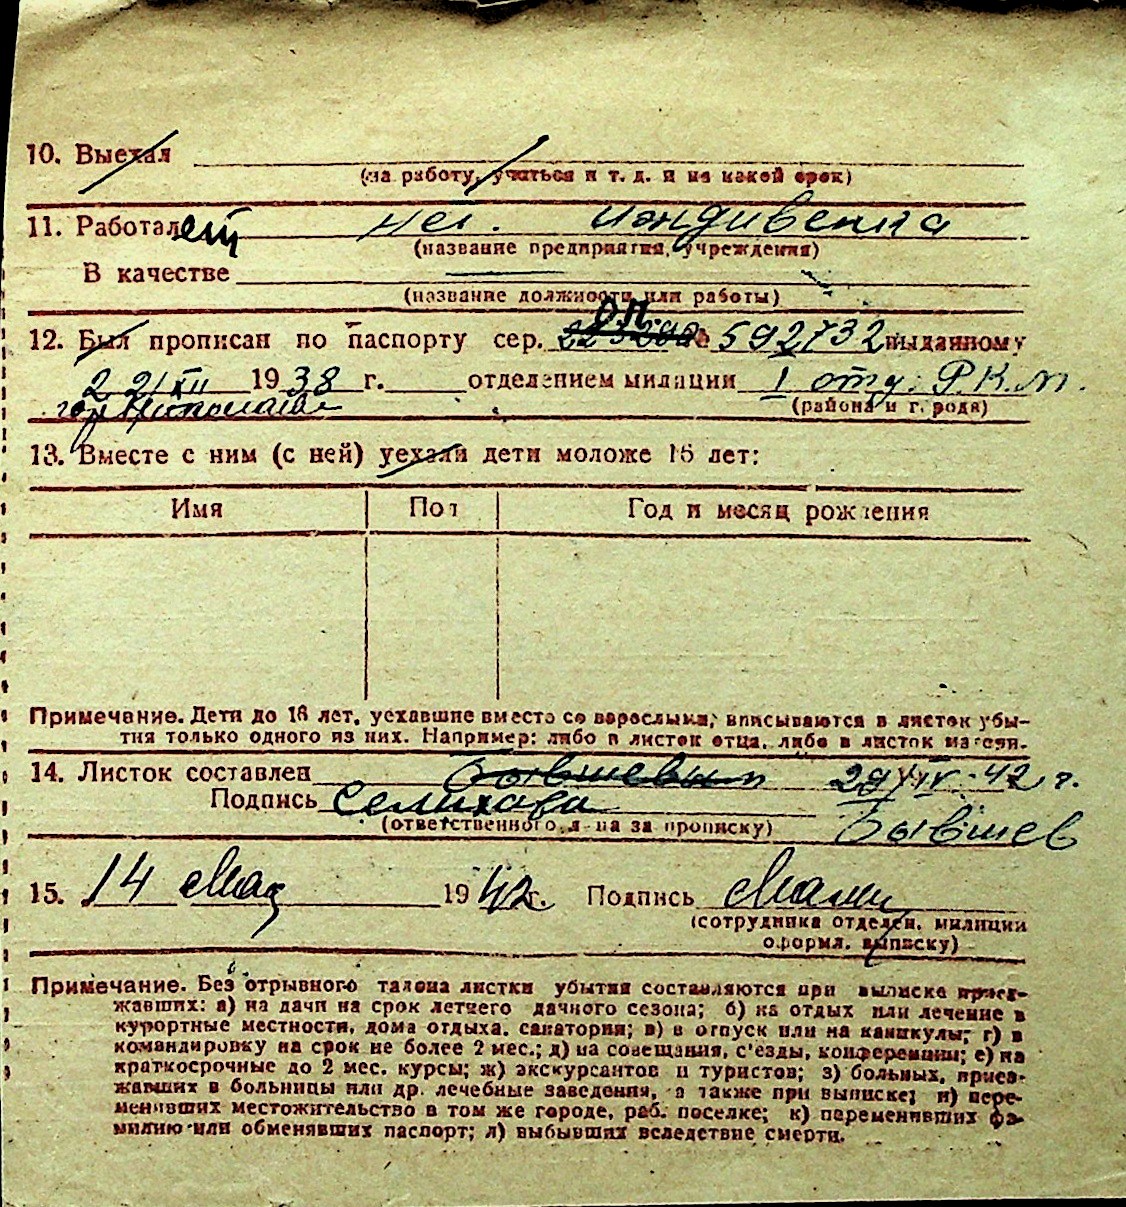 10. Выехал
(на работу, учиться и т. д. и на какой срок)
11. Работал ет нет. иждивенка
(название предприятия, учреждения)
В качестве
(название должности или работы)
12. Был прописан по паспорту сер. о.п. № 592732 выданному
22/XII 1938 г. отделением милиции I отд. Р.К.М.
гор.
(района и города)
13. Вместе с ним (с ней) уехали дети моложе 16 лет:
Имя Пол Год и месяц рождения
Примечание. Дети до 16 лет, уехавшие вместо со взрослыми, вписываются в листок убы-
тия только одного из них. Например: либо в листок отца, либо в листок матери.
14. Листок составлен Бывшевым 29/IV-42 г.
Подпись Селихова
(ответственного л-ца за прописку) Бывшев
15. 14 мая 1942 г. Подпись
(сотрудника отделен. милиции
оформл. выписку)
Примечание. Без отрывного талона листки убытия составляются при выписке приез-
жавших: а) на дачи на срок летнего дачного сезона; б) на отдых или лечение в
курортные местности, дома отдыха, санатория; в) в отпуск или на каникулы; г) в
командировку на срок не более 2 мес.; д) на совещания, с'езды, конференции; е) на
краткосрочные до 2 мес. курсы; ж) экскурсантов и туристов; з) больных, приез-
жавших в больницы или др. лечебные заведения, а также при выписке; и) пере-
менивших местожительство в том же городе, раб. поселке; к) переменивших фа-
милию или обменявших паспорт; л) выбывших вследствие смерти.